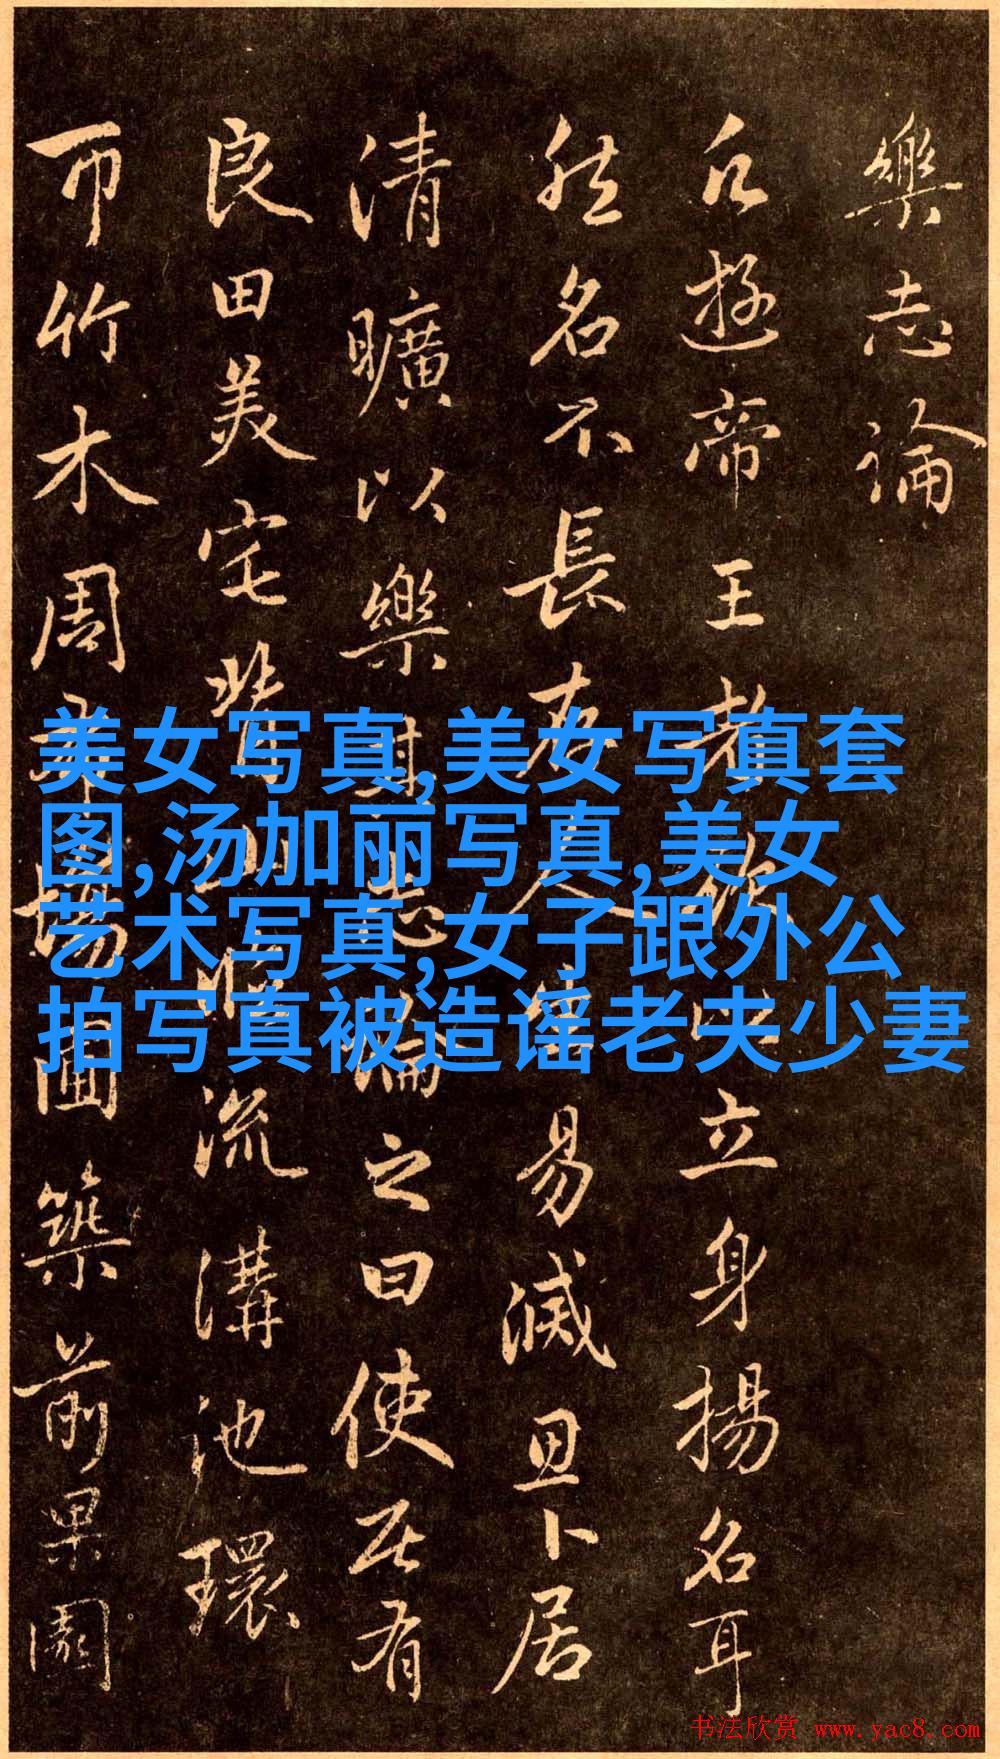 樂志論
凡遊帝王者欲以立身揚名耳
然名不長存人生易滅思卜居
清曠以樂其志論之曰使居有
良田美宅背山臨流溝池環
帀竹木周布場圃築前果園
美女写真,美女写真套
图,汤加丽写真,美女
艺术写真,女子跟外公
拍写真被造谣老夫少妻
书法欣赏 www.yac8.com